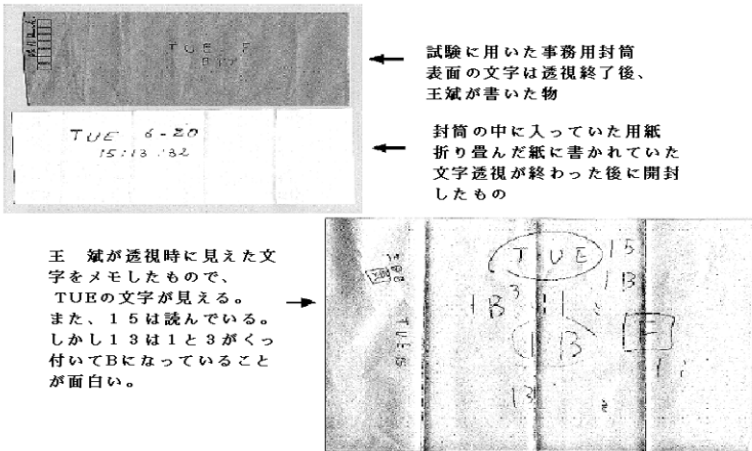 試験に用いた事務用封筒
表面の文字は透視終了後、
王斌が書いた物
TUE F
封筒の中に入っていた用紙
折り畳んだ紙に書かれていた
文字透視が終わった後に開封
したもの
TUE 6-20
15:13:32
王　斌が透視時に見えた文
字をメモしたもので、
TUEの文字が見える。
また、１５は読んでいる。
しかし１３は１と３がくっ
付いてBになっていること
が面白い。
TUE 15
1B
1B3
1B
F
13
TUE